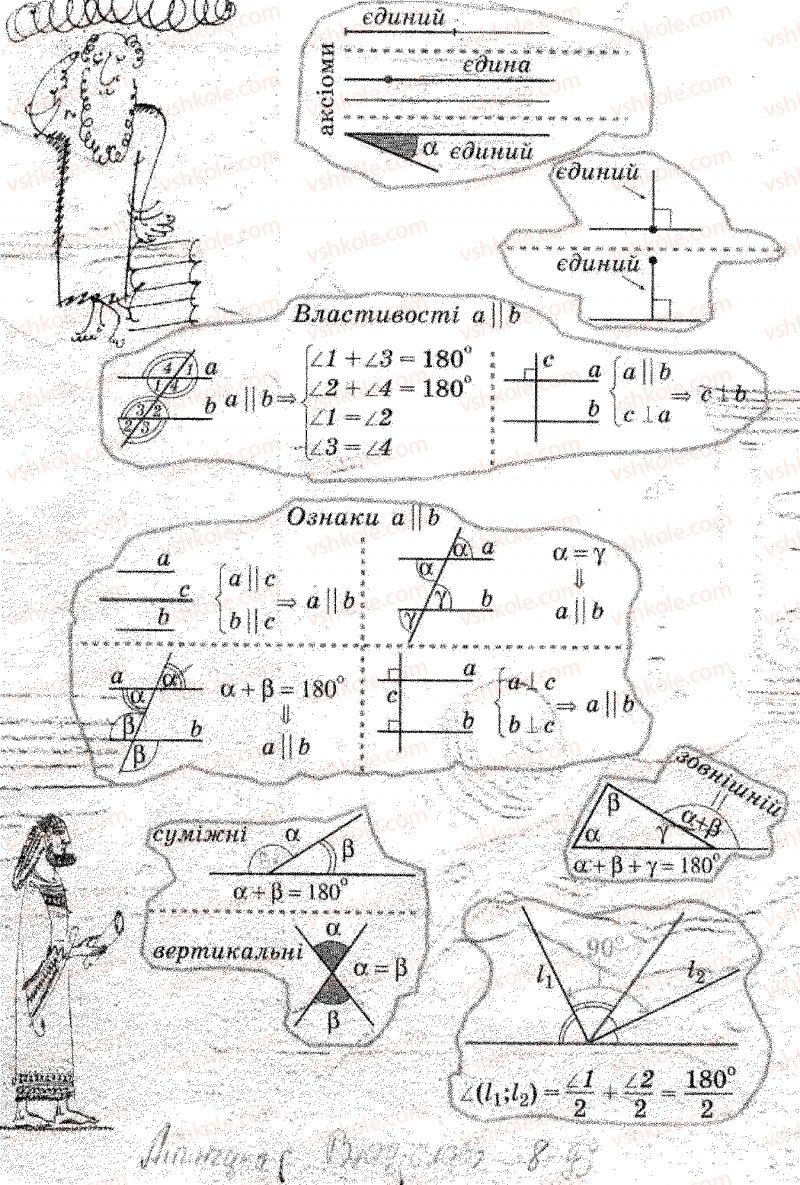 аксіоми
єдиний
єдина
α єдиний
єдиний
єдиний
Властивості a || b
4 1
1 4
3 2
2 3
a
b
a || b ⇒
∠1 + ∠3 = 180°
∠2 + ∠4 = 180°
∠1 = ∠2
∠3 = ∠4
c
a
b
a || b
c ⊥ a
⇒ c ⊥ b
Ознаки a || b
a
c
b
a || c
b || c
⇒ a || b
α a
α
γ b
γ
α = γ
⇓
a || b
a α
α
β b
β
α + β = 180°
⇓
a || b
a
c
b
a ⊥ c
b ⊥ c
⇒ a || b
зовнішній
β
α γ α+β
α + β + γ = 180°
суміжні
α
β
α + β = 180°
вертикальні
α
α = β
β
90°
l₁ l₂
∠(l₁;l₂) = ∠1/2 + ∠2/2 = 180°/2
vshkole.com